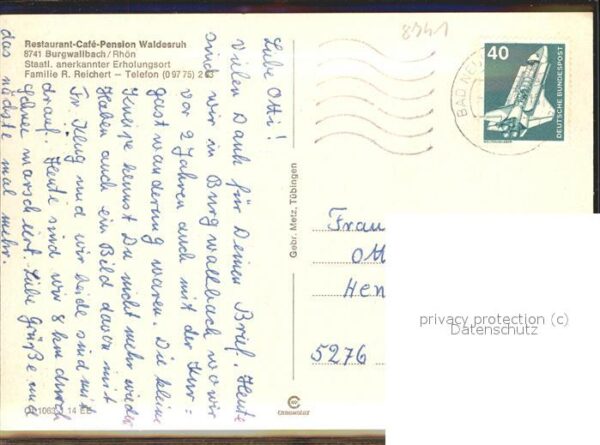 8941
Restaurant-Café-Pension Waldesruh
8741 Burgwallbach/Rhön
Staatl. anerkannter Erholungsort
Familie R. Reichert – Telefon (09775) 2
Liebe Otti!
Vielen Dank für Deinen Brief. Heute
sind wir in Burgwallbach wo wir
vor 2 Jahren auch mit der Kur=
gastwanderung waren. Die kleine
Kneipe kennst Du nicht mehr wieder
Haben auch ein Bild davon mit
Fr. Klug und wir beide sind mit
drauf. Heute sind wir 8 km durch
marschiert. Liebe Grüße und
das nächste mal mehr.
Gebr. Metz, Tübingen
40
DEUTSCHE BUNDESPOST
BAD NEU
Frau
Ott
Hen
5276
privacy protection (c)
Datenschutz